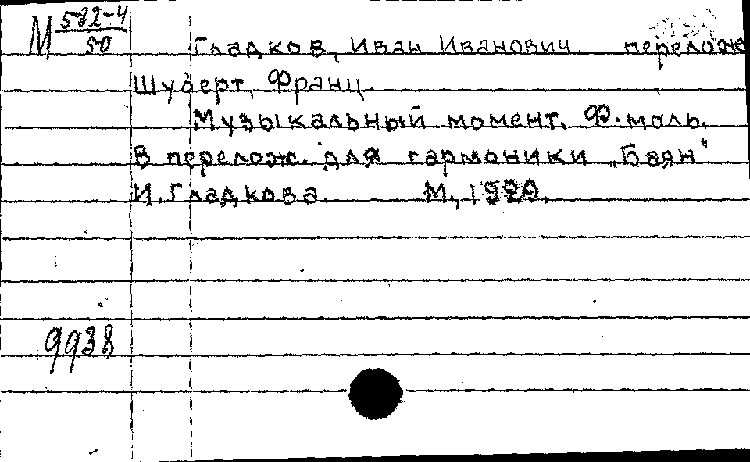 М 582-4
50
Гладков, Иван Иванович перелож
Шуберт, Франц.
Музыкальный момент. Ф.-моль.
В перелож. для гармоники „Баян"
И. Гладкова. М.,
9938